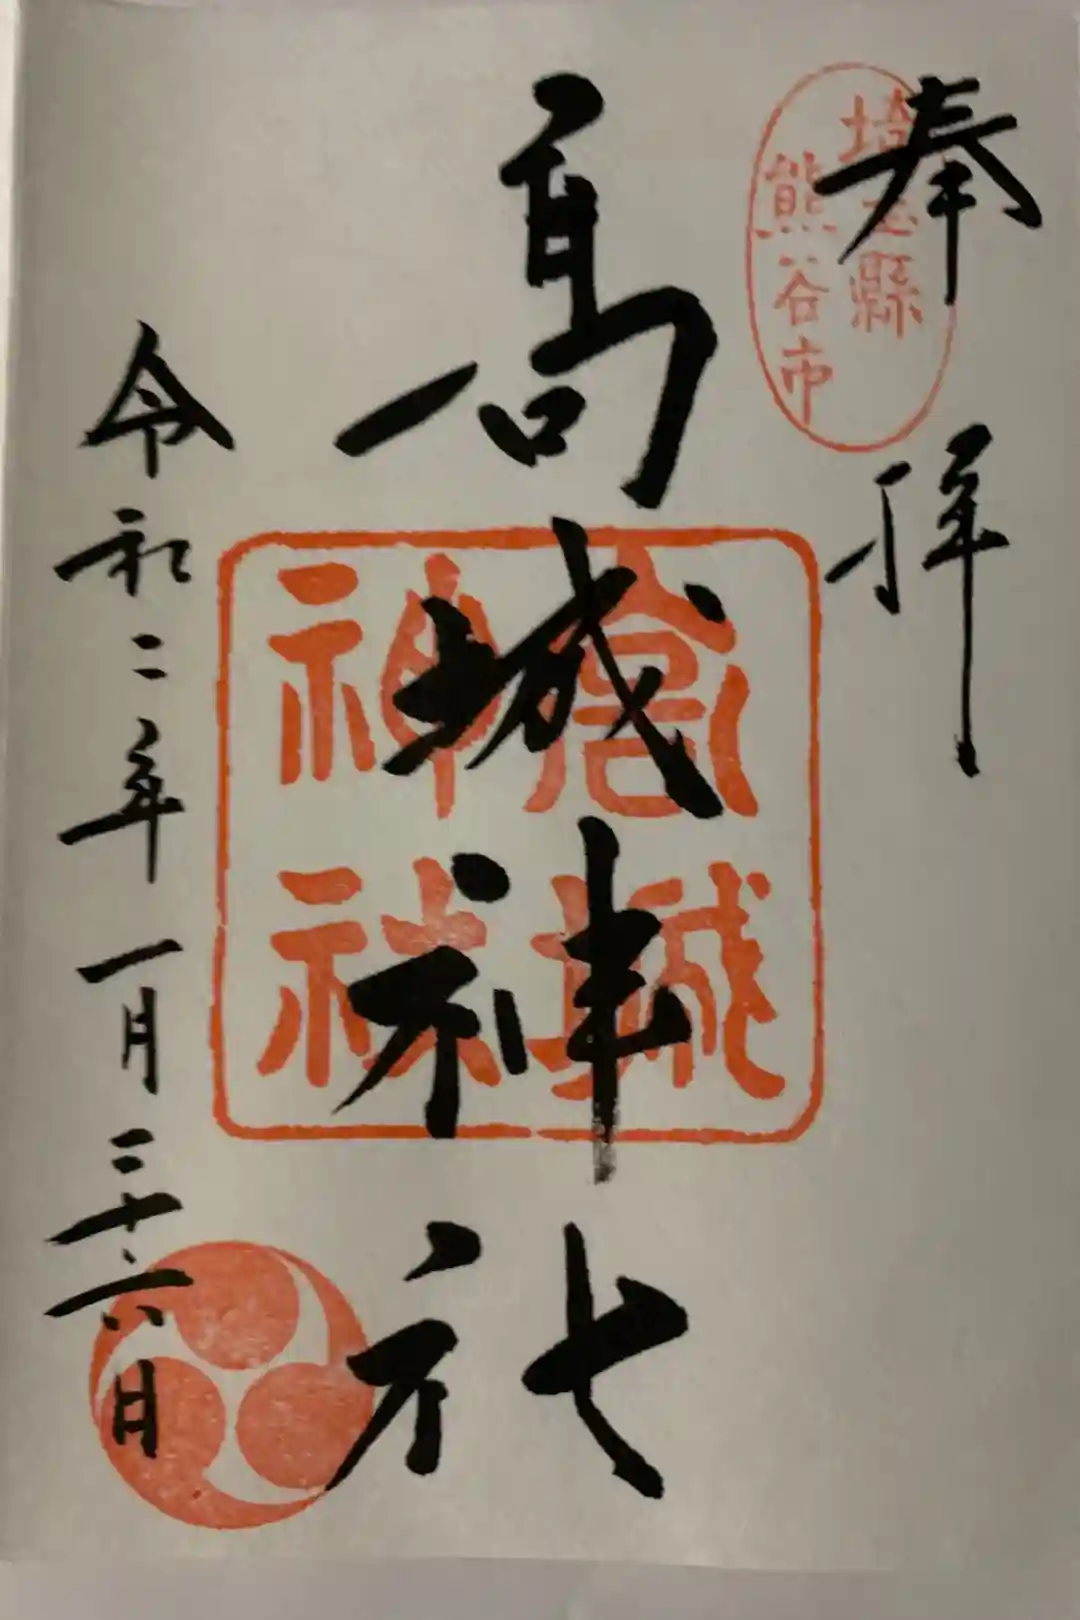 奉拝
埼玉縣
熊谷市
高城神社
高城
神社
令和二年一月二十六日